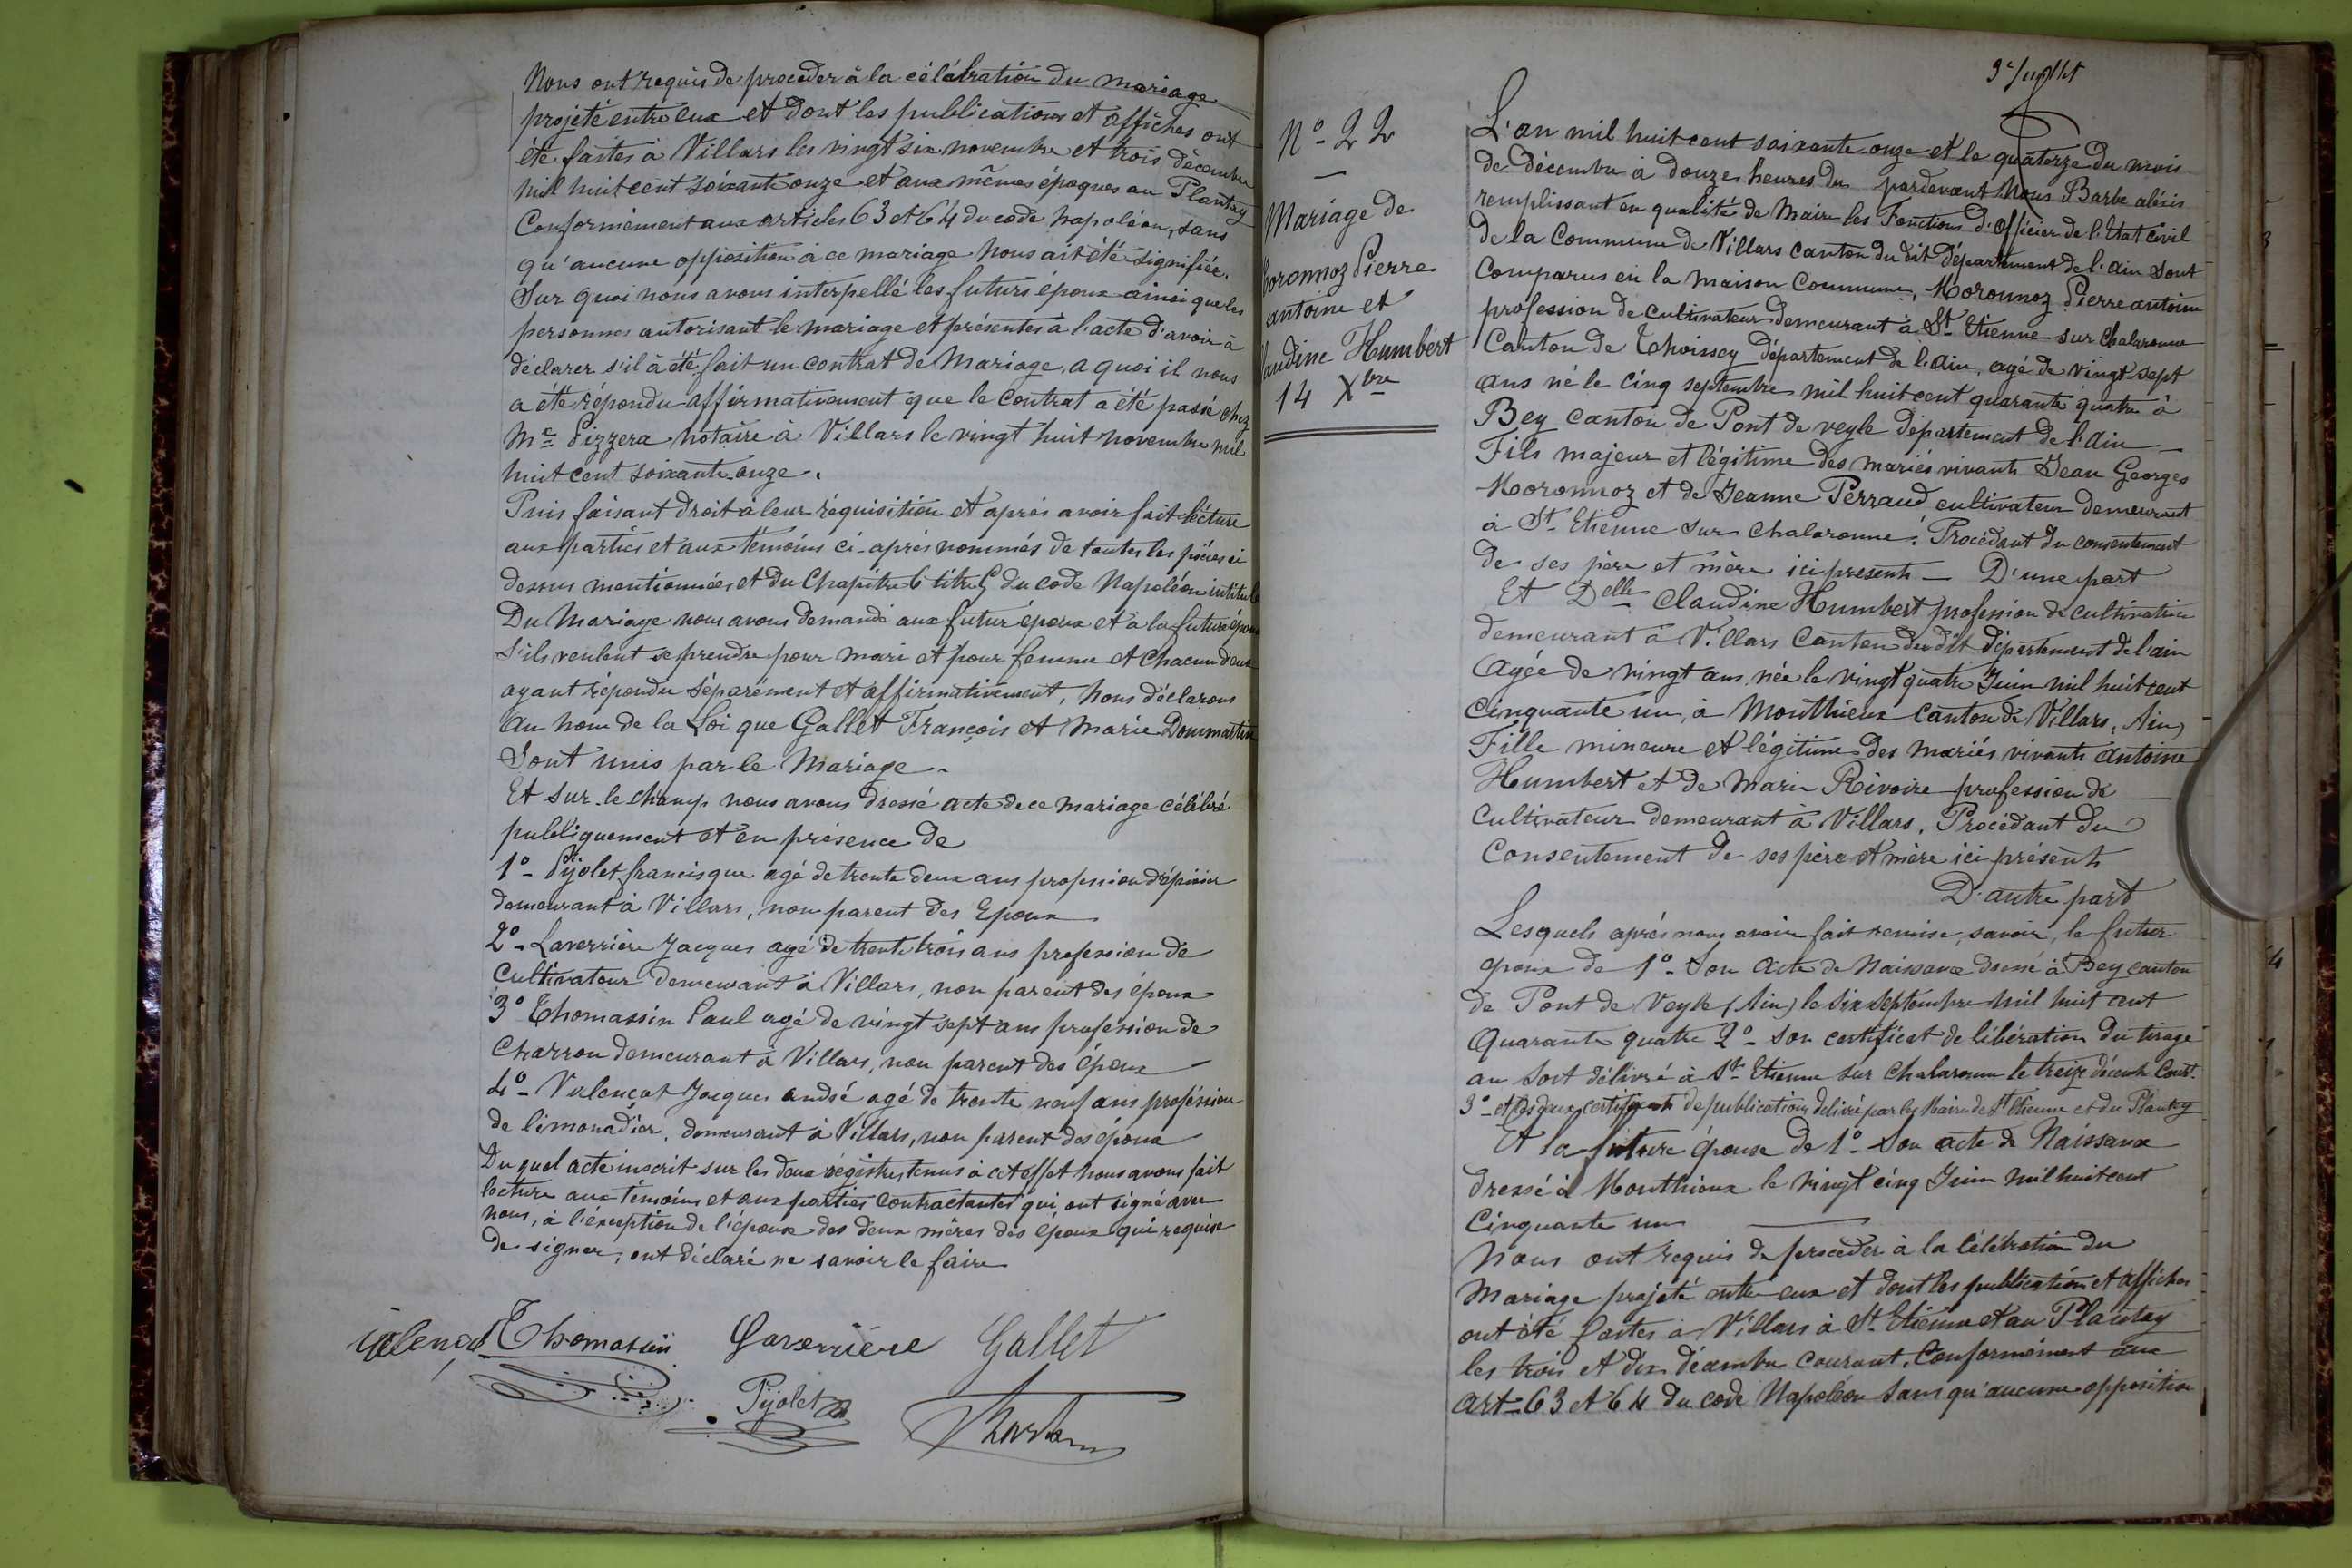 Nous ont requis de procéder à la célébration du mariage
projeté entre eux et dont les publications et affiches ont
été faites à Villars les vingt six novembre et trois décembre
mil huit cent soixante onze et aux mêmes époques au Plantay
Conformément aux articles 63 et 64 du code Napoléon, sans
qu'aucune opposition à ce mariage nous ait été signifiée.
Sur quoi nous avons interpellé les futurs époux ainsi que les
personnes autorisant le mariage et présentes à l'acte d'avoir à
déclarer s'il à été fait un contrat de Mariage, a quoi il nous
a été répondu affirmativement que le Contrat a été passé chez
Me Pizzera notaire à Villars le vingt huit novembre mil
huit cent soixante onze.
Puis faisant droit à leur réquisition et après avoir fait lécture
aux parties et aux témoins ci-après nommés de toutes les pièces ci
dessus mentionnées et du Chapitre 6 titre 5 du code Napoléon intitulé
Du Mariage nous avons demandé aux futur époux et à la future épouse
s'ils veulent se prendre pour mari et pour femme et chacun d'eux
ayant répondu séparément et affirmativement, nous déclarons
au nom de la Loi que Gallet François et Marie Dommartin
Sont unis par le Mariage.
Et sur le champ nous avons dressé acte de ce mariage célébré
publiquement et en présence de
1º - Pijolet francisque agé de trente deux ans profession d'épicier
demeurant à Villars, non parent des Epoux
2º - Laverrière Jacques agé de trente trois ans profession de
Cultivateur demeurant à Villars, non parent des époux
3º Thomassin Paul agé de vingt sept ans profession de
Charron demeurant à Villars, non parent des époux
4º - Valençot Jacques andré agé de trente neuf ans proféssion
de limonadier, demeurant à Villars, non parent des époux
Du quel acte inscrit sur les deux régistres tenus à cet effet nous avons fait
lecture aux témoins et aux parties contractantes qui ont signé avec
nous, à l'éxception de l'épouse des deux mères des époux qui requise
de signer, ont déclaré ne savoir le faire
Thomassin Laverrière Gallet
Pijolet
Nº - 22
Mariage de
oronnoz Pierre
antoine et
laudine Humbert
14 Xbre
L'an mil huit cent soixante onze et le quatorze du mois
de décembre à douze heures du pardevant Nous Barbe aléxis
remplissant en qualité de Maire les Fonctions d'officier de l'Etat civil
de la Commune de Villars canton du dit département de l'ain sont
Comparus en la maison Commune, Moronnoz Pierre antoine
profession de cultivateur demeurant à St Etienne sur Chalaronne
Canton de Thoissey département de l'Ain, agé de vingt sept
ans né le cinq septembre mil huit cent quarante quatre à
Bey canton de Pont de veyle département de l'Ain
Fils majeur et légitime des mariés vivants Jean Georges
Moronnoz et de Jeanne Perraud cultivateur demeurant
à St Etienne sur Chalaronne. Procédant du consentement
de ses père et mère ici présents - D'une part
Et Delle Claudine Humbert profession de cultivatrice
demeurant à Villars Canton du dit département de l'ain
agée de vingt ans née le vingt quatre Juin mil huit cent
Cinquante un, à Monthieux canton de Villars, Ain
Fille mineure et légitime des mariés vivants Antoine
Humbert et de Marie Rivoire profession de
Cultivateur demeurant à Villars, Procédant du
Consentement de ses père et mère ici présents
D'autre part
Lesquels après nous avoir fait remise, savoir, le futur
époux de 1º - Son acte de Naissance dressé à Bey canton
de Pont de Veyle (Ain) le six septempre mil huit cent
Quarante quatre 2º - son certificat de libération du tirage
au sort délivré à St Etienne sur Chalaronne le treize décemb. Cour.t
3º - et les deux certificats de publications délivré par les Maires de St Etienne et du Plantay
Et la future épouse de 1º - Son acte de Naissance
dressé à Monthieux le vingt cinq Juin mil huit cent
Cinquante un
Nous ont requis de procéder à la célébration du
Mariage projeté entre eux et dont les publication et affiches
ont été faites à Villars à St Etienne et au Plantay
les trois et dix décembre courant. Conformément aux
Art - 63 et 64 du code Napoléon sans qu'aucune opposition